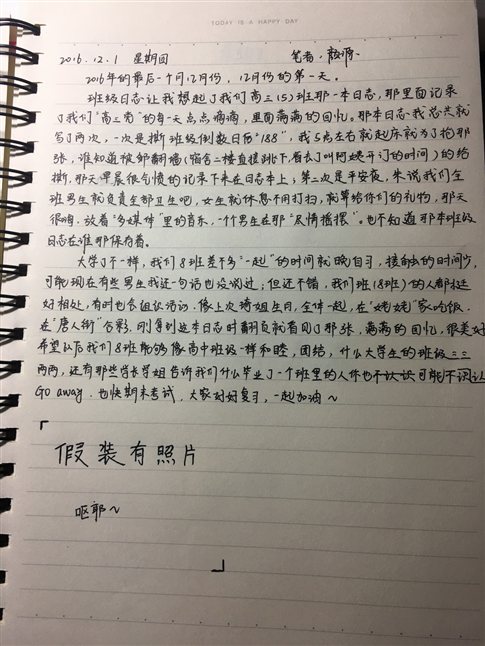 TODAY IS A HAPPY DAY
2016.12.1 星期四 笔者:
2016年的最后一个月12月份,12月份的第一天。
班级日志让我想起了我们高三(5)班那一本日志,那里面记录
了我们"高三党"的每一天点点滴滴,里面满满的回忆。那本日志我总共就
写了两次,一次是撕班级倒数日历"188",我5点左右就起床就为了抢那
张,谁知道被邹翻墙(宿舍二楼直接跳下,有大门叫阿姨开门的时间)的给
撕,那天早晨很气愤的记录下来在日志本上;第二次是平安夜,朱说我们全
班男生就负责全部卫生吧,女生就休息不用打扫,就算给你们的礼物,那天
很嗨,放着"多媒体"里的音乐,一个男生在那"尽情摇摆"。也不知道那本班级
日志在谁那保存着。
大学了不一样,我们8班差不多"一起"的时间就晚自习,接触的时间少,
可能现在有些男生我还一句话也没说过;但还不错,我们班(18班)的人都挺
好相处,有时也会组织活动,像上次琦姐生日,全体一起,在"姥姥"家吃饭,
在"唐人街"合影,刚拿到这本日志时翻页就看见了那张,满满的回忆,很美好
希望以后我们8班能够像高中班级一样和睦,团结,什么大学生的班级三三
两两,还有那些学长学姐告诉我们什么毕业了一个班里的人你也不认识可能不认识
Go away. 也快期末考试,大家好好复习,一起加油~
「
假装有照片
呕耶~
」